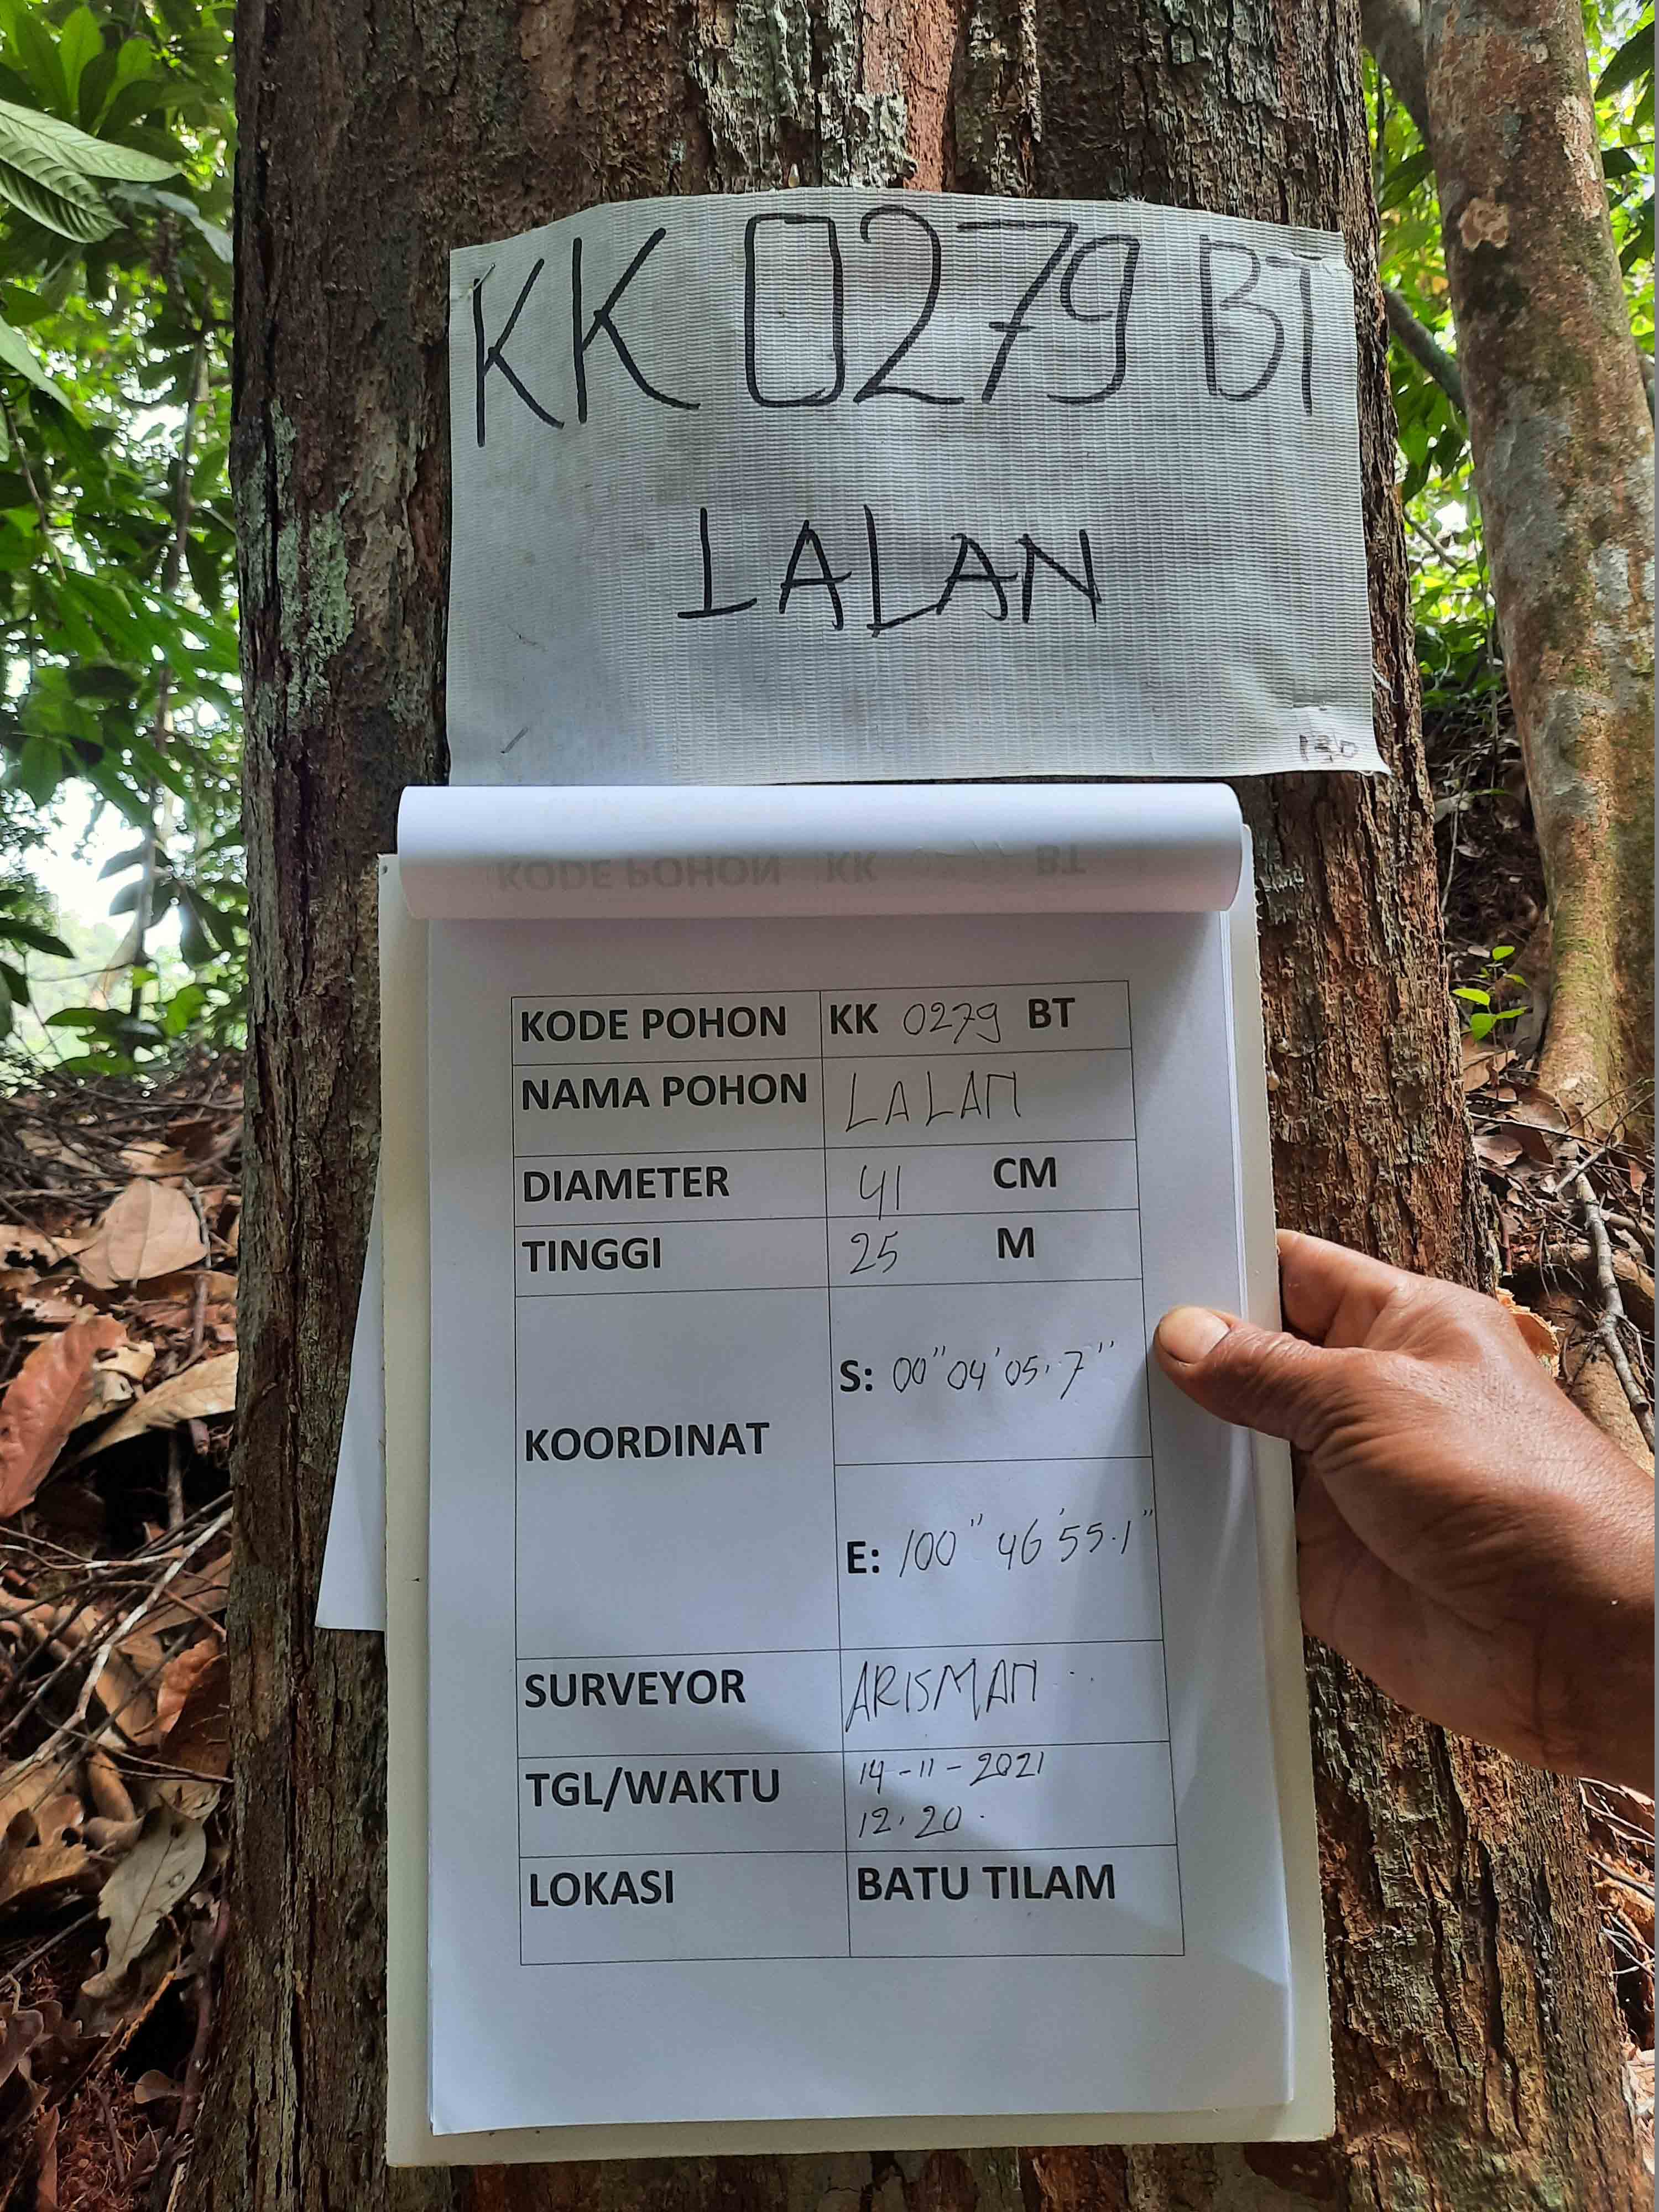 KK 0279 BT
LALAN
130
KODE POHON KK BT
KODE POHON KK 0279 BT
NAMA POHON LALAN
DIAMETER 41 CM
TINGGI 25 M
KOORDINAT
S: 00" 04' 05.7"
E: 100" 46' 55.1"
SURVEYOR ARISMAN
TGL/WAKTU 14-11-2021
12.20
LOKASI BATU TILAM